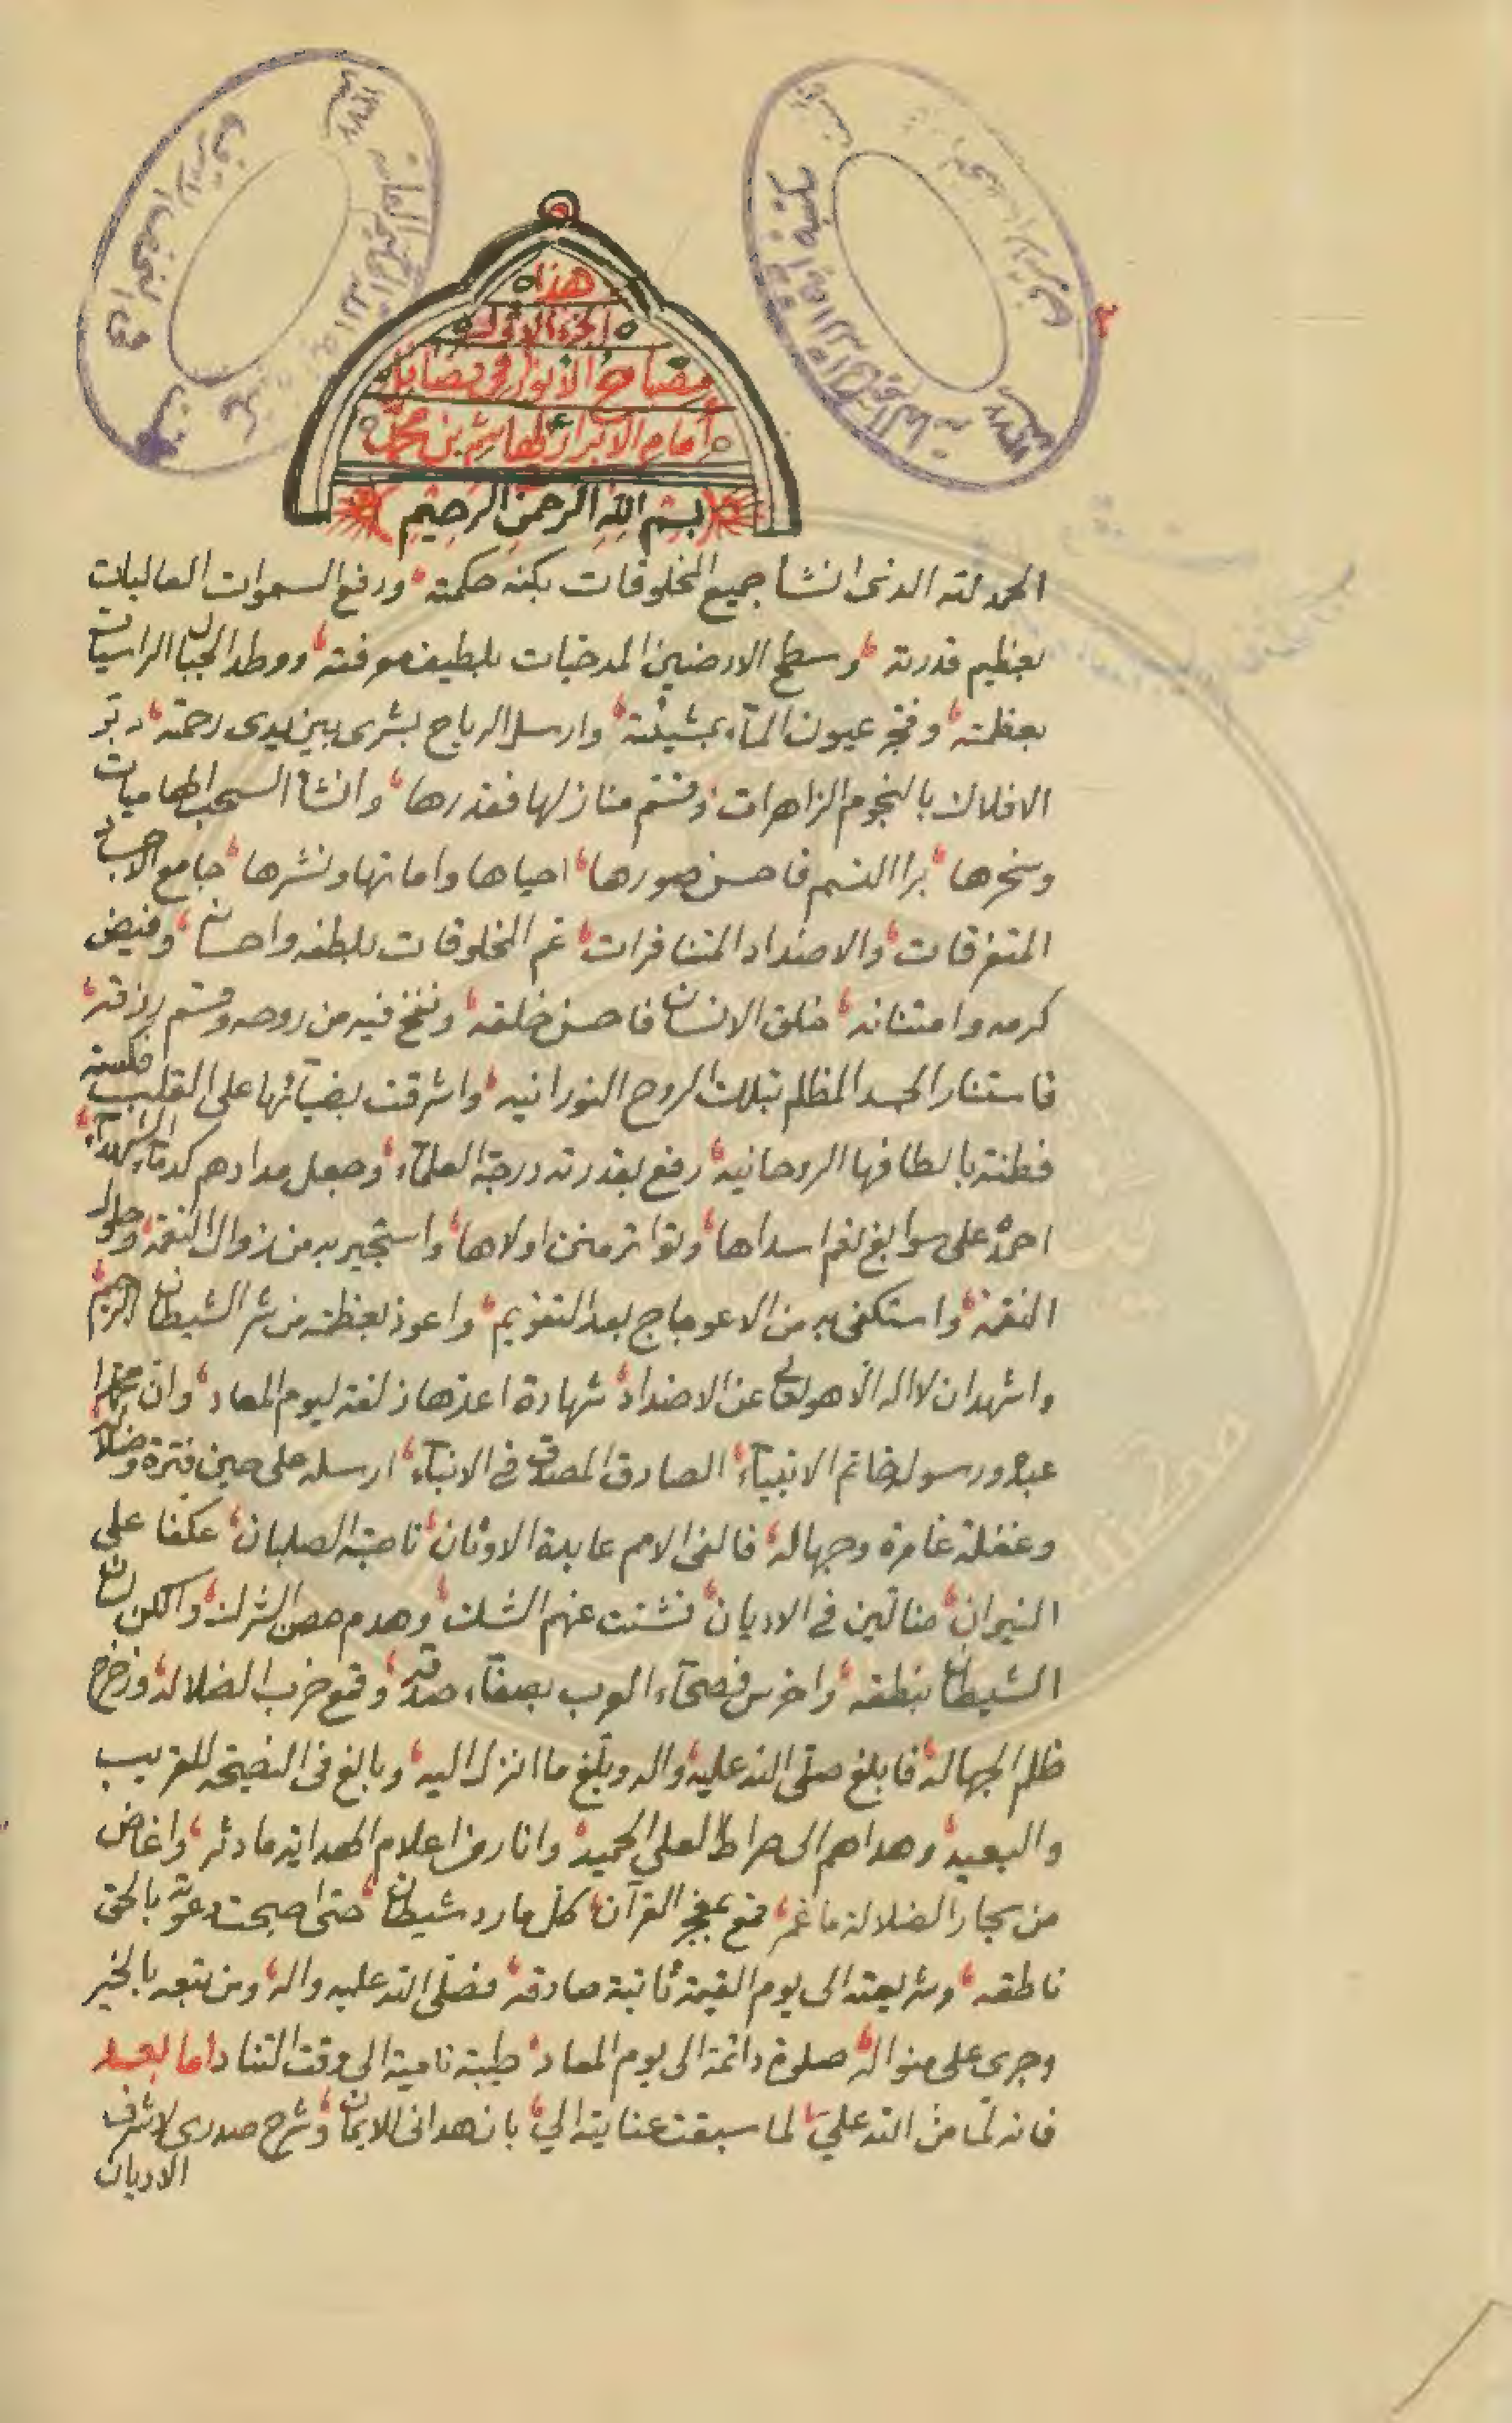 هذا
الجزء الاول
مصباح الأنوار في فضائل
إمام الأبرار لهاشم بن محمد
بسم الله الرحمن الرحيم
الحمد لله الذى انشا جميع المخلوقات بكنه حكمته ورفع السموات العاليات
بعظيم قدرته وسطح الارضين المدحيات بلطيف معرفته ووطد الجبال الراسيات
بعظمته وفجر عيون المآء بمشيئته وارسل الرياح بشرى بين يدى رحمته دبّر
الافلاك بالنجوم الزاهرات وقسّم منازلها فقدرها وانشأ السحب الهاميات
وسخرها برا النسم فاحسن صورها احياها واماتها ونشرها جامع الاجساد
المتفرقات والاضداد المتنافرات عم المخلوقات بلطفه واحسانه وفيض
كرمه وامتنانه خلق الانسان فاحسن خلقه ونفخ فيه من روحه وقسم رزقه
فاستنار الجسد المظلم بتلك الروح النورانيه واشرقت بضيآئها على القلب فكسته
فطنته بالطافها الروحانيه رفع بقدرته درجة العلمآء وجعل مدادهم كدمآء الشهدآء
احمده على سوابغ نعم اسداها وتواتر منن اولاها واستجير به من زوال النعمة وحلول
النقمة واستكفى به من الاعوجاج بعد التقويم واعوذ بعظمته من شر الشيطان الرجيم
واشهد ان لا اله الّا هو تعالى عن الاضداد شهادة اعدها زلفة ليوم المعاد وان محمّدا
عبده ورسوله خاتم الانبيآء الصادق المصدق فى الانبآء ارسله على حين فترة وضلاله
وغفلة غامرة وجهاله فالفى الامم عابدة الاوثان ناصبة الصلبان عكفا على
النيران ضالّين فى الاديان فشتت عنهم الشك وهدم حصن الشرك والكن لسان
الشيطان بنطقه واخرس فصحآء العرب بصفآء صدقه وقمع حزب الضلاله وزحزح
ظلم الجهالة فابلغ صلّى الله عليه واله وبلّغ ما انزل اليه وبالغ فى النصيحه للقريب
والبعيد وهداهم الى صراط العلي الحميد وانار من اعلام الهداية ما دثر واغاض
من بحار الضلالة ما غمر قمع بمعجز القرآن كل مارد شيطان حتى اصبحت دعوته بالحق
ناطقه وشريعته الى يوم القيمة ثابتة صادقه فصلّى الله عليه واله ومن تبعه بالخير
وجرى على منواله صلوة دائمة الى يوم المعاد طيبة نامية الى وقت التناد اما بعد
فانه لمّا منّ الله عليّ لما سبقت عنايته اليّ بان هدانى للايمان وشرح صدرى لاشرف
الاديان